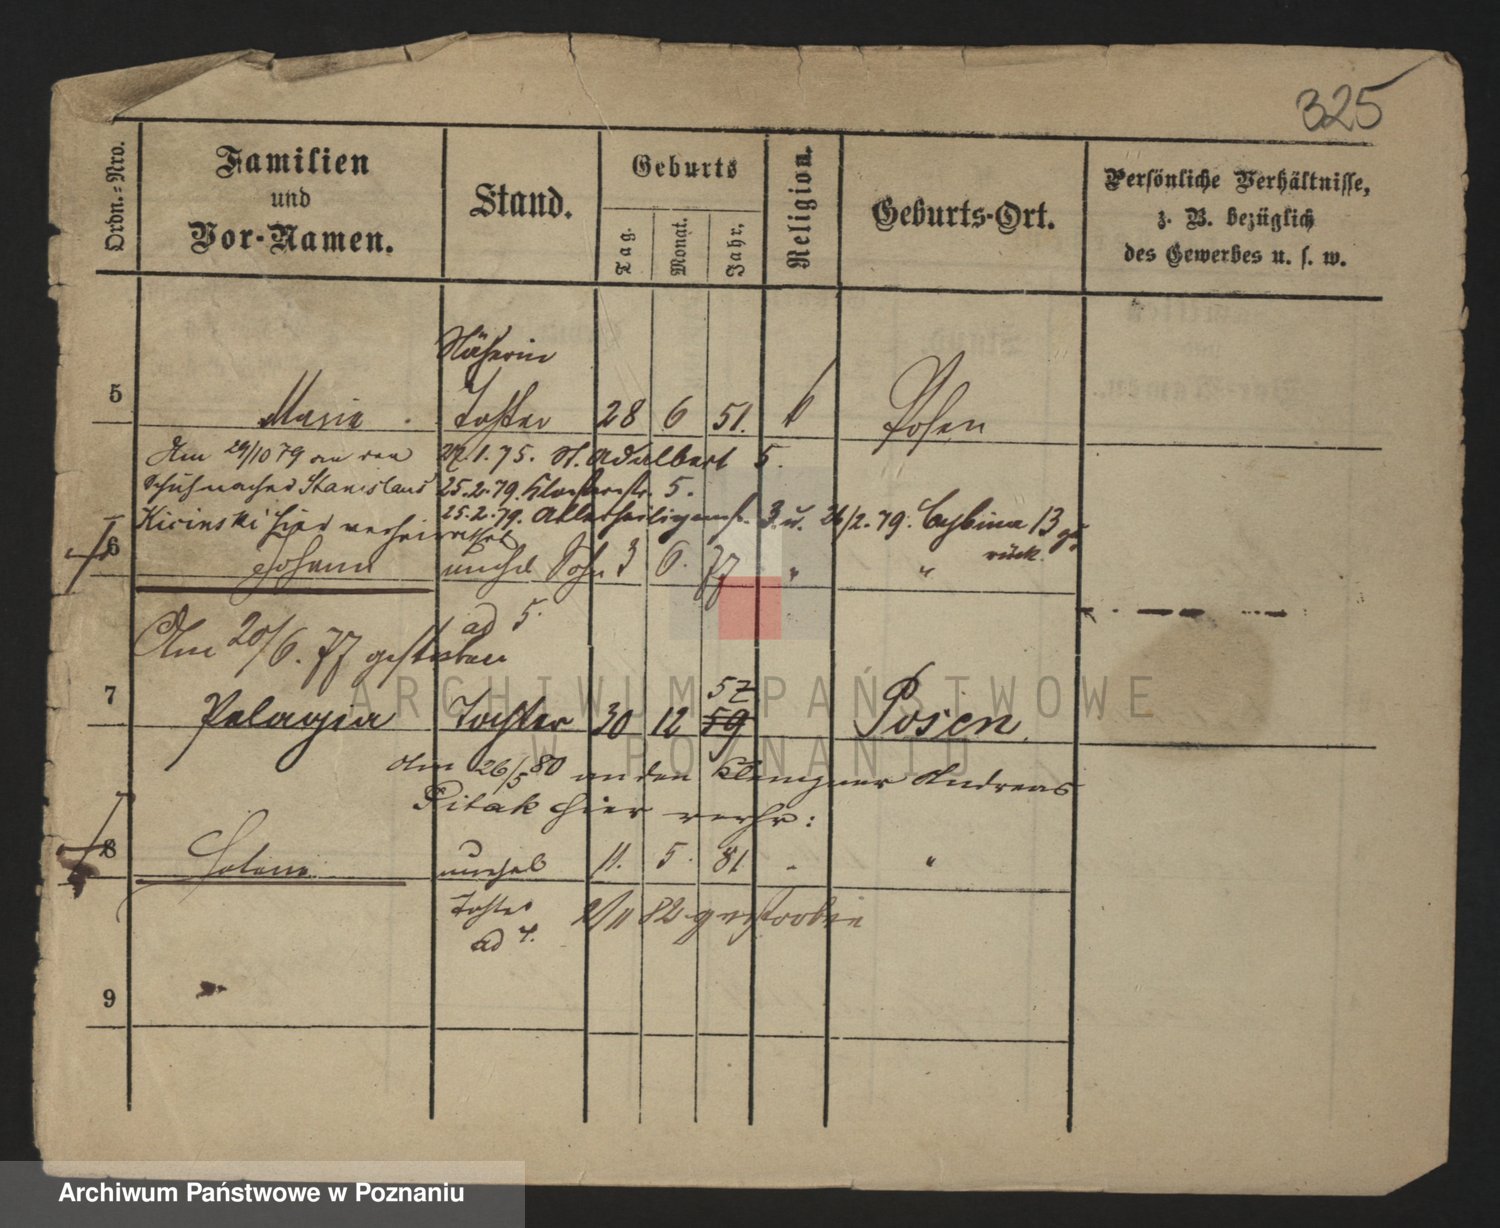 325
Ordn.=Nro.
Familien
und
Vor-Namen.
Stand.
Geburts
Tag.
Monat.
Jahr.
Religion.
Geburts-Ort.
Persönliche Verhältnisse,
z. B. bezüglich
des Gewerbes u. s. w.
Näherin
5 Marie Tochter 28 6 51. Posen
Am 29/10 79 an den 27.1.75. St. Adalbert 5.
Schuhmacher Stanislaus 25.2.79. Klosterstr. 5.
Kicinski hier verheirathet 25.2.79. Allerheiligenstr. 3. u. 26/2.79. Cybina 13 zu
rück.
6 Johann unehel Sohn 3 6. 77 " "
ad 5.
Am 20/6. 77 gestorben
57
7 Pelagia Tochter 30 12 59 Posen
Am 26/5 80 an den Klempner Andreas
Pitak hier verh:
8 unehel 11. 5. 81 "
Tochter 2/11 82 gestorben
ad 7.
9
ARCHIWUM PAŃSTWOWE
W POZNANIU
Archiwum Państwowe w Poznaniu